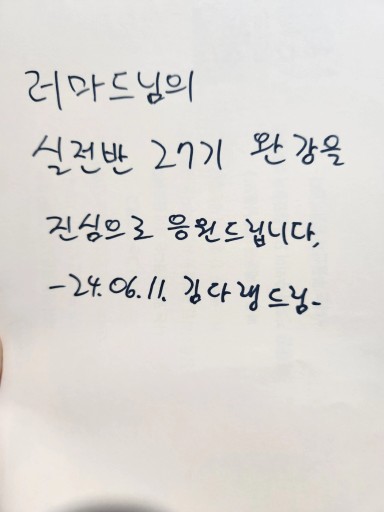 러마드님의
실전반 27기 완강을
진심으로 응원드립니다.
-24.06.11. 김다랭드림-